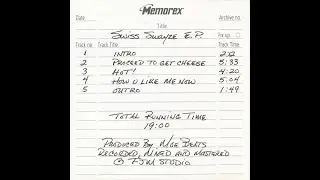 Memorex
Date Archive no.
Title
Swiss Swayze E.P.
For up
Track no Track Title Track Time
1 INTRO 2:12
2 PROCEED TO GET CHEESE 5:33
3 HOT! 4:20
4 HOW U LIKE ME NOW 5:04
5 OUTRO 1:49
TOTAL RUNNING TIME
19:00
PRODUCED BY MOE BEATS
RECORDED, MIXED AND MASTERED
@ FJM STUDIO